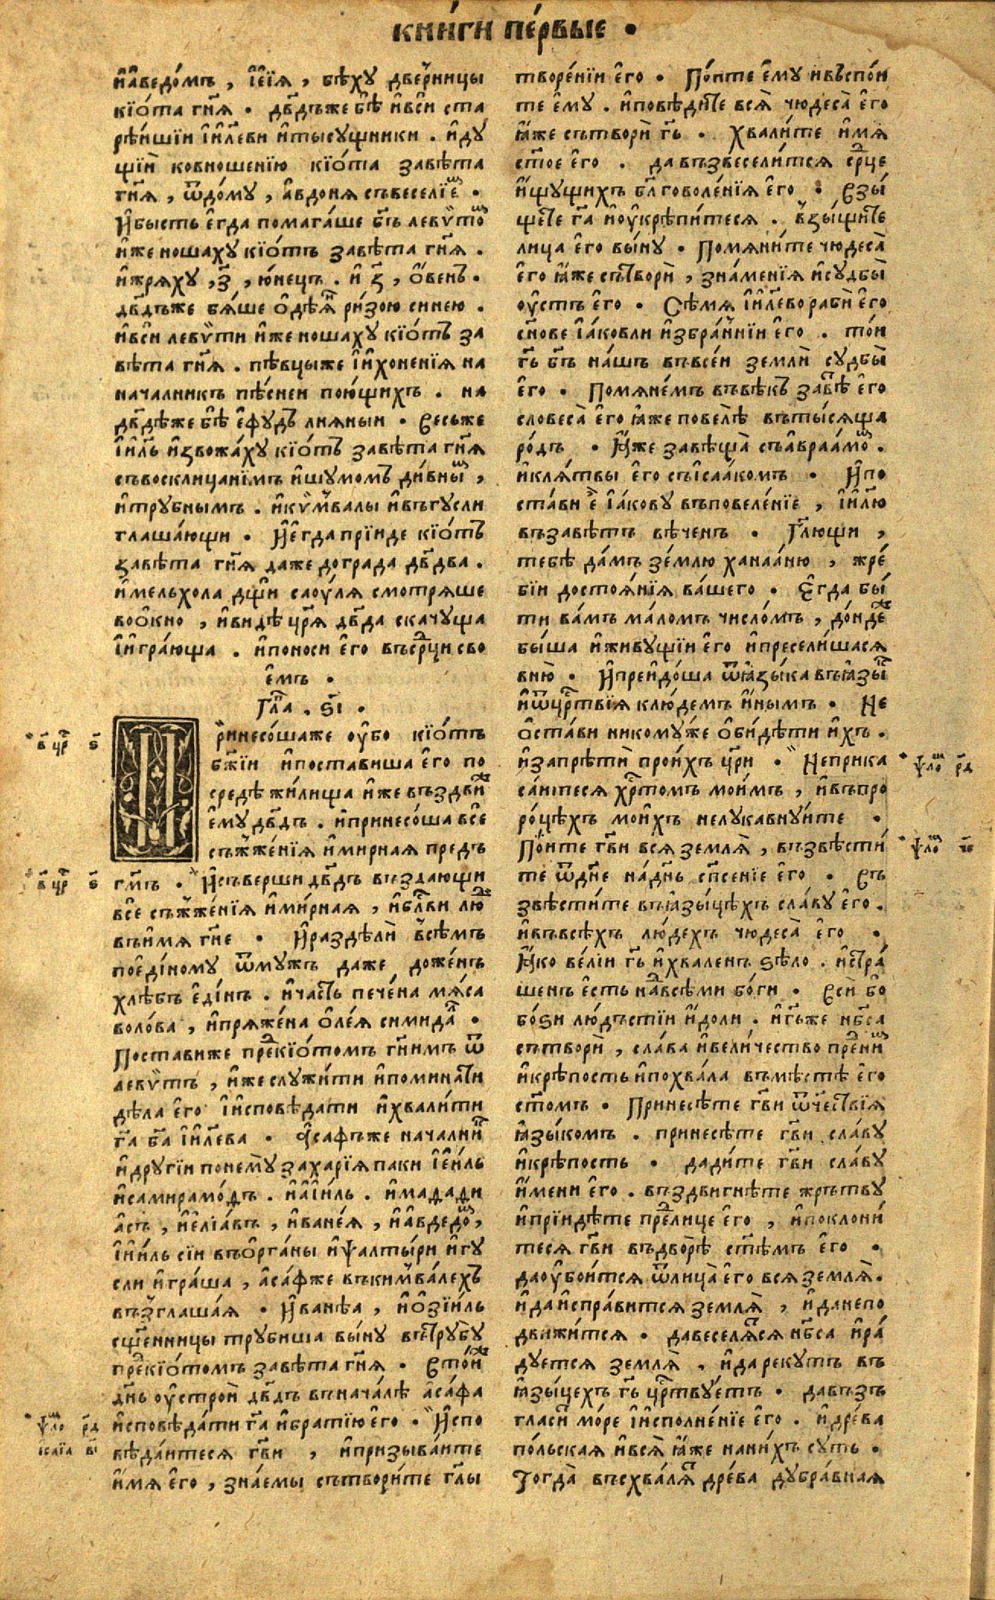 кни́ги пе́рвые •
и҆а҆ведо́мъ , і҆еі́я , бѣху две́рницы
кїо́та гн҃я • дв҃дъже бѣ̀ и҆вси̑ ста
рѣ́ишїи і҆и҃леви и҆тысущники . и҆ду
щїи ковношенїю кїо́та завѣ́та
гн҃я , ѿдо́му , а҆вдоня съвеселїе́м •
И҆бысть е҆гда помага́ше бг҃ъ левѵто́м
и҆же ношаху кїо́тъ завѣ́та гн҃я .
и҆жряху , з҃ , ю́нецъ . и҆ з҃ , о́венъ •
дв҃дъже бя́ше о҆дѣ́я ри́зою синею .
и҆вси левѵ́ти и҆же ношаху кїо́тъ за
вѣ́та гн҃я . пѣвцыже і҆и҆хоненїя на
началникъ пѣ́снеи пою́щихъ . на
дв҃дѣже бѣ̀ е҆фу́дъ лняныи • весьже
і҆и҃ль и҆звожа́ху кїо́тъ завѣ́та гн҃я
съвосклица́нїмъ и҆шумомъ ди́вным ,
и҆трубнымъ . и҆кѵ́мвалы и҆въгусли
глаша́ющи • И҆е҆гда прїиде кїо́тъ
завѣ́та гн҃я даже до града дв҃два .
и҆мельхола дщи саоу́ля смотряше
во о҆кно , и҆видѣ цр҃я дв҃да скачуща
і҆игра́юща . и҆поноси е҆го въсе́рци сво
е҆мъ •
Гла . ѕ҃і •
ринесо́шаже оу҆бо кїо́тъ
бж҃їи и҆поставиша е҆го по
средѣ жи́лища и҆же въздви́
е҆му дв҃дъ . и҆принесо́ша все
съжже́нїя и҆мирная предъ
гм҃ъ . И҆съверши дв҃дъ въздающи
все съжже́нїя и҆ми́рная , и҆блви лю
въи҆мя гн҃е • И҆раздѣлѝ всѣмъ
пое҆ди́ному ѿмужъ даже до же́нъ
хлѣ́бъ е҆ди́нъ . и҆ча́сть пече́на мя́са
воло́ва , и҆пряже́на о҆ле́я симида́л •
Поставиже пре́кїо́томъ гн҃имъ ѿ
левѵ́тъ , и҆же служи́ти и҆помина́ти
дѣла е҆го і҆и҆сповѣ́дати и҆хвали́ти
гг҃а бг҃а і҆и҃лева • А҆сафъже нача́лни
и҆други́и понему захарїя паки і҆еи́ль
и҆самирамо́дъ . и҆а҆їи́ль . и҆мадади
а҆съ , и҆е҆лїа́въ , и҆ване́я , и҆а҆вдедо́м ,
і҆и҆и́ль сїи въо҆рга́ны и҆ѱалты́ри и҆гу
сли и҆гра́ша , а҆са́фже въкимва́лехъ
възглаша́я • И҆ване́а , и҆о҆зїи́ль
сщ҃енницы трубиша вы́ну въ трубу
пре́кїо́томъ завѣ́та гн҃я • Въто́и
дн҃ь оу҆строѝ дв҃дъ въ нача́лѣ а҆са́фа
и҆сповѣда́ти гг҃а и҆братїю е҆го • И҆спо
вѣда́итеся гв҃и , и҆призыва́ите
и҆мя е҆го , зна́емы сътвори́те гл҃ы
творе́нїи е҆го • По́ите е҆му и҆въспо́и
те е҆му . и҆повѣ́дите вся̀ чюдеса̀ е҆го
ꙗ҆же сътворѝ гь҃ . хвали́те и҆мя
ст҃ое е҆го . да възвесели́тся се́рце
и҆щущихъ бл҃говоле́нїя е҆го • Взы́
щете гг҃а и҆оу҆крѣпи́теся . взы́щите
лица е҆го вы́ну • Помяни́те чюдеса̀
е҆го ꙗ҆же сътворѝ , зна́менїя и҆судбы̀
оу҆стъ е҆го • Сѣмя і҆и҃лево рабѝ е҆го
сн҃ове і҆а́ковли и҆збра́ннїи е҆го . то́и
гь҃ бг҃ъ на́шъ въвсе́и землѝ судбы̀
е҆го • Помяне́мъ въвѣкъ завѣ́ е҆го
словеса̀ е҆го ꙗ҆же повелѣ̀ въты́сяща
ро́дъ • Ꙗ҆же завѣща̀ съа҆враа́мом .
и҆кля́твы е҆го съі҆саа́комъ • И҆по
ста́ви е҆ і҆а́кову въповеле́нїе , і҆и҃лю
възавѣ́тъ вѣченъ • Гл҃ющи ,
тебѣ̀ да́мъ зе́млю ханаа́ню , жре́
бїи достоя́нїя ва́шего • Е҆гда бы́
ти ва́мъ ма́ломъ число́мъ , до́нде
бы́ша и҆живу́щїи е҆го и҆пресели́шася
вню̀ • И҆преидо́ша ѿꙗ҆зы́ка въꙗ҆зы
и҆ѿцр҃твїя клю́демъ и҆ны́мъ • Не
о҆ста́ви никому́же о҆би́дѣти и҆хъ .
и҆запрѣтѝ прои́хъ цр҃и • Неприка
са́итеся хр҃томъ мои́мъ , и҆въпро
ро́цѣхъ мои́хъ нелука́внуите •
По́ите гв҃и вся земля̀ , възвѣсти́
те ѿдне на́днь сп҃сенїе е҆го • Въ
звѣсти́те въꙗ҆зы́цѣхъ сла́ву е҆го .
и҆въвсѣ́хъ лю́дехъ чюдеса̀ е҆го •
Ꙗ҆ко ве́лїи гь҃ и҆хва́ленъ ѕѣло . и҆стра́
шенъ е҆сть на́всѣми бо́ги • вси бо
бо́ѕи лю́дьстїи и҆доли . и҆гь҃же нб҃са
сътворѝ , сла́ва и҆вели́чество пре́ним
и҆крѣпость и҆похва́ла въмѣ́стѣ е҆го
ст҃омъ • Принесѣ́те гв҃и ѿче́ствїя
ꙗ҆зы́комъ . принесѣ́те гв҃и сла́ву
и҆крѣпость • дади́те гв҃и сла́ву
и҆мени е҆го . въздви́гнѣте жрътву
и҆прїидѣ́те пре́лице е҆го , и҆поклони́
теся гв҃и въдворѣ̀ ст҃ѣмъ е҆го •
даоу҆бои́тся ѿлица̀ е҆го вся земля̀ .
и҆ да и҆спра́вится земля̀ , и҆ да непо
движи́тся • да веселя́ся нб҃са и҆ра́
дуется земля̀ , и҆да реку́тъ въ
ꙗ҆зы́цехъ гь҃ цр҃твуетъ • давъзъ
гласи́ мо́ре і҆и҆сполне́нїе е҆го . и҆дре́ва
по́льская и҆вся̀ ꙗ҆же нани́хъ суть .
Тогда̀ въсхва́ля дре́ва дубра́вная
в҃ цр ѕ҃
в҃ цр ѕ҃
ѱло рд҃
ісаїа в҃і
ѱло рд҃
ѱло че҃